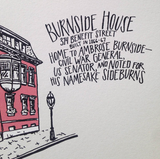 BURNSIDE HOUSE
314 BENEFIT STREET
BUILT IN 1866-67
HOME TO AMBROSE BURNSIDE—
CIVIL WAR GENERAL,
US SENATOR, AND NOTED FOR
HIS NAMESAKE SIDEBURNS